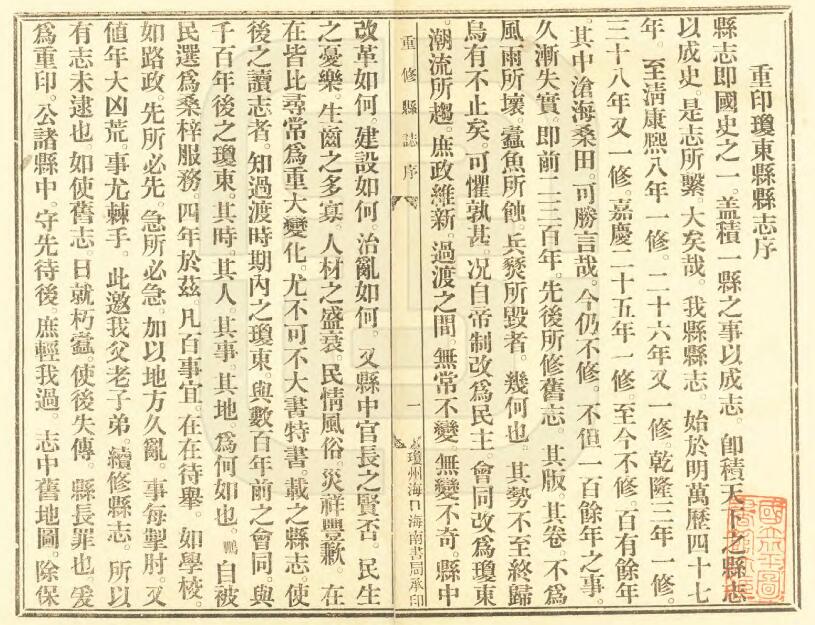 重印瓊東縣縣志序
縣志即國史之一。盖積一縣之事以成志。卽積天下之縣志
以成史。是志所繫。大矣哉。我縣縣志。始於明萬歷四十七
年。至清康熙八年一修。二十六年又一修。乾隆三年一修。
三十八年又一修。嘉慶二十五年一修。至今不修。百有餘年
其中滄海桑田。可勝言哉。今仍不修。不但一百餘年之事。
久漸失實。即前二三百年。先後所修舊志。其版。其卷。不爲
風雨所壞。蠹魚所蝕。兵燹所毀者。幾何也。其勢不至終歸
烏有不止矣。可懼孰甚。况自帝制改爲民主。會同改爲瓊東
潮流所趨。庶政維新。過渡之間。無常不變。無變不奇。縣中
重修縣誌序
一
瓊州海口海南書局承印
改革如何。建設如何。治亂如何。又縣中官長之賢否。民生
之憂樂。生齒之多寡。人材之盛衰。民情風俗。災祥豐歉。在
在皆比尋常爲重大變化。尤不可不大書特書。載之縣志。使
後之讀志者。知過渡時期內之瓊東。與數百年前之會同。與
千百年後之瓊東。其時。其人。其事。其地。爲何如也。鵬自被
民選爲桑梓服務。四年於茲。凡百事宜。在在待舉。如學校。
如路政。先所必先。急所必急。加以地方久亂。事每掣肘。又
値年大凶荒。事尤棘手。此邀我父老子弟。續修縣志。所以
有志未逮也。如使舊志。日就朽蠹。使後失傳。縣長罪也。爰
爲重印。公諸縣中。守先待後。庶輕我過。志中舊地圖。除保